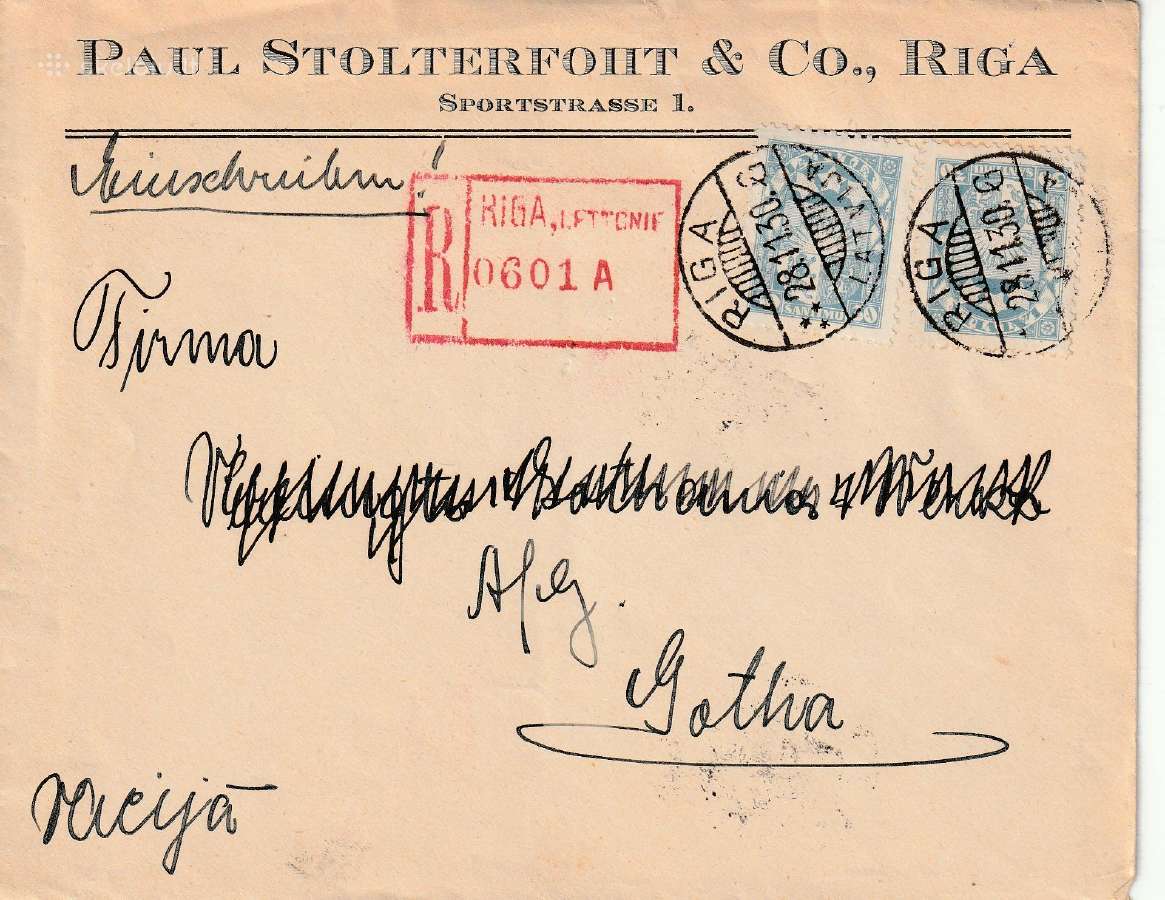 PAUL STOLTERFOHT & CO., RIGA
SPORTSTRASSE 1.
Einschreiben!
R RIGA, LETTONIE
0601 A
RIGA 28.11.30. LATVIJA
RIGA 28.11.30.
LATVIJA
Firma
A/G.
Gotha
Vācijā